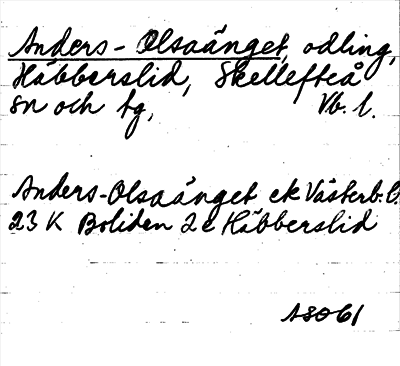 Anders-Olsaänget, odling,
Häbberslid, Skellefteå
sn och tg, Vb. l.
Anders-Olsaänget ek Västerb. l.
23 K Boliden 2c Häbberslid